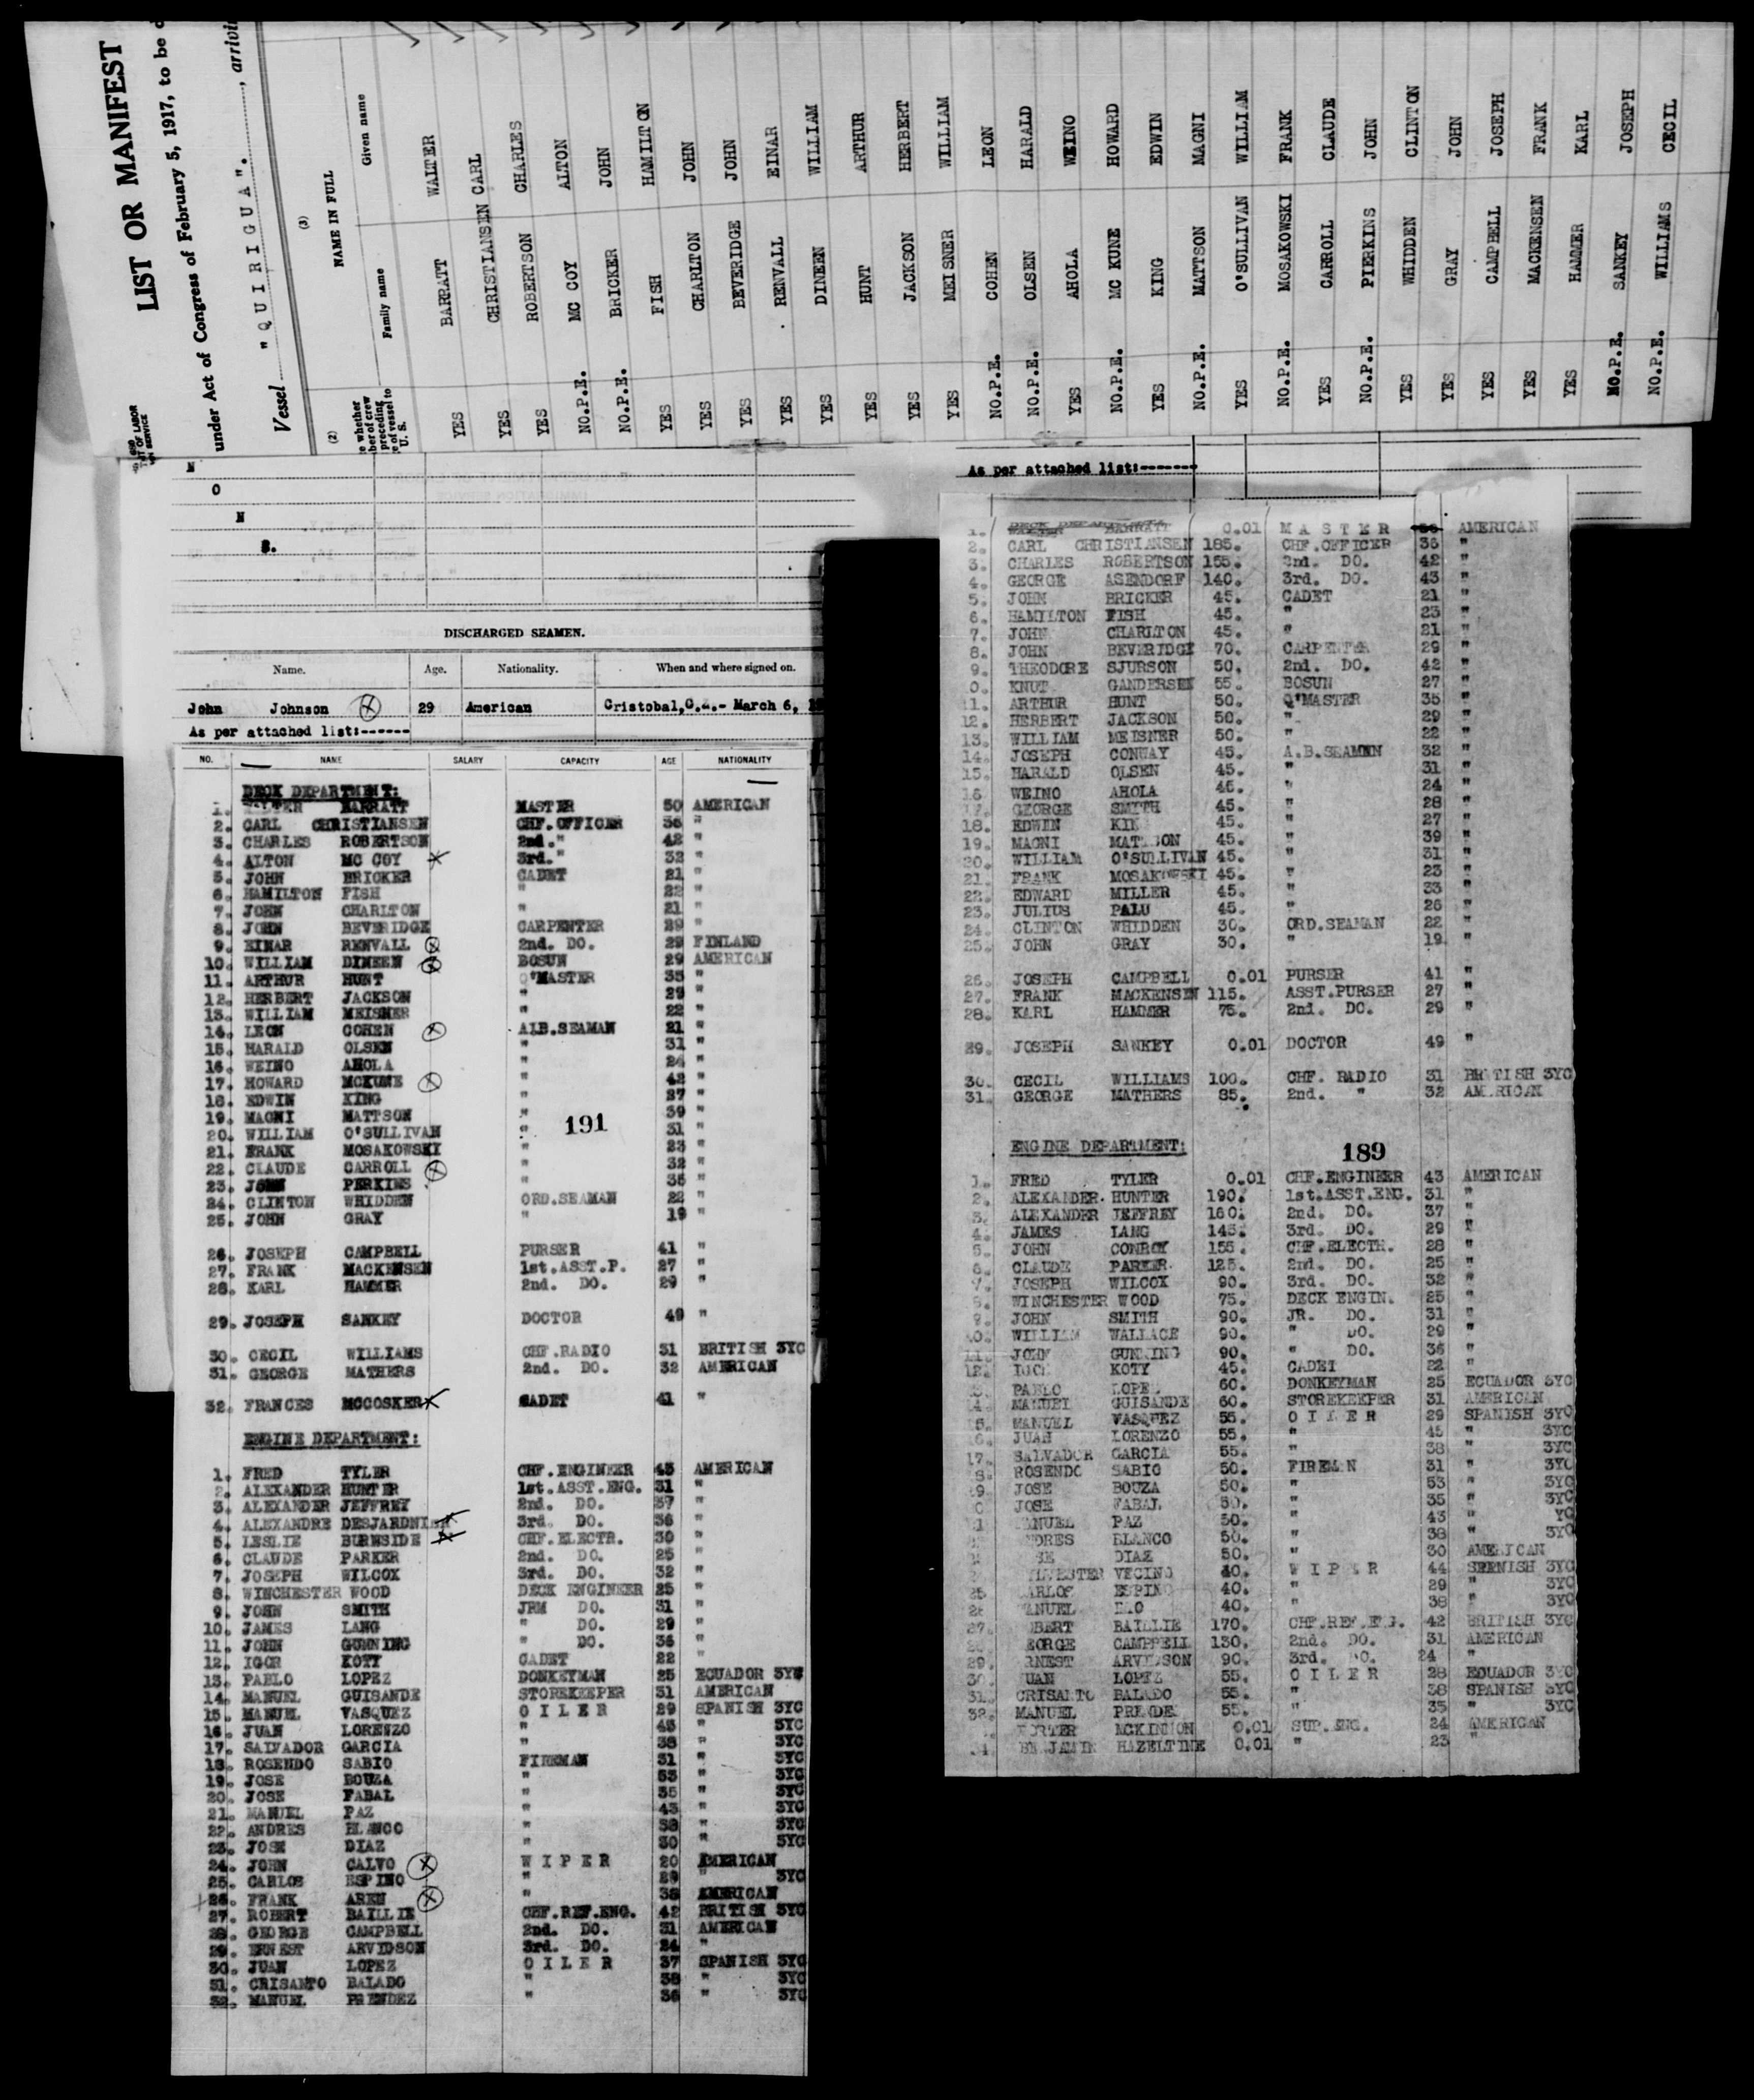 LIST OR MANIFEST
under Act of Congress of February 5, 1917, to be
Vessel "QUIRIGUA". , arrivi
(2) (3)
NAME IN FULL
Family name Given name
YES BARRATT WALTER
YES CHRISTIANSEN CARL
YES ROBERTSON CHARLES
NO.P.E. MC COY ALTON
NO.P.E. BRICKER JOHN
YES FISH HAMILTON
YES CHARLTON JOHN
YES BEVERIDGE JOHN
YES RENVALL EINAR
YES DINEEN WILLIAM
YES HUNT ARTHUR
YES JACKSON HERBERT
YES MEISNER WILLIAM
NO.P.E. COHEN LEON
NO.P.E. OLSEN HARALD
YES AHOLA WEINO
NO.P.E. MC KUNE HOWARD
YES KING EDWIN
NO.P.E. MATTSON MAGNI
YES O'SULLIVAN WILLIAM
NO.P.E. MOSAKOWSKI FRANK
YES CARROLL CLAUDE
NO.P.E. PIERKINS JOHN
YES WHIDDEN CLINTON
YES GRAY JOHN
YES CAMPBELL JOSEPH
YES MACKENSEN FRANK
YES HAMMER KARL
NO.P.E. SANKEY JOSEPH
NO.P.E. WILLIAMS CECIL
N
O
N
E.
DISCHARGED SEAMEN.
Name. Age. Nationality. When and where signed on.
John Johnson 29 American Cristobal,C.Z.- March 6,
As per attached list:------
NO. NAME SALARY CAPACITY AGE NATIONALITY
DECK DEPARTMENT:
1. WALTER BARRATT MASTER 50 AMERICAN
2. CARL CHRISTIANSEN CHF.OFFICER 36 "
3. CHARLES ROBERTSON 2nd." 42 "
4. ALTON MC COY 3rd." 32 "
5. JOHN BRICKER CADET 21 "
6. HAMILTON FISH " 22 "
7. JOHN CHARLTON " 21 "
8. JOHN BEVERIDGE CARPENTER 29 "
9. EINAR RENVALL 2nd. DO. 29 FINLAND
10. WILLIAM DINEEN BOSUN 29 AMERICAN
11. ARTHUR HUNT Q'MASTER 35 "
12. HERBERT JACKSON " 29 "
13. WILLIAM MEISNER " 22 "
14. LEON COHEN A.B.SEAMAN 21 "
15. HARALD OLSEN " 31 "
16. WEINO AHOLA " 24 "
17. HOWARD MCKUNE " 42 "
18. EDWIN KING " 27 "
19. MAGNI MATTSON " 39 "
20. WILLIAM O'SULLIVAN " 31 "
191
21. FRANK MOSAKOWSKI " 23 "
22. CLAUDE CARROLL " 32 "
23. JOHN PERKINS " 35 "
24. CLINTON WHIDDEN ORD.SEAMAN 22 "
25. JOHN GRAY " 19 "
26. JOSEPH CAMPBELL PURSER 41 "
27. FRANK MACKENSEN 1st.ASST.P. 27 "
28. KARL HAMMER 2nd. DO. 29 "
29. JOSEPH SANKEY DOCTOR 49 "
30. CECIL WILLIAMS CHF.RADIO 31 BRITISH 3YC
31. GEORGE MATHERS 2nd. DO. 32 AMERICAN
32. FRANCES MCCOSKER CADET 41 "
ENGINE DEPARTMENT:
1. FRED TYLER CHF.ENGINEER 43 AMERICAN
2. ALEXANDER HUNTER 1st.ASST.ENG. 31 "
3. ALEXANDER JEFFREY 2nd. DO. 37 "
4. ALEXANDRE DESJARDNIER 3rd. DO. 36 "
5. LESLIE BURNSIDE CHF.ELECTR. 30 "
6. CLAUDE PARKER 2nd. DO. 25 "
7. JOSEPH WILCOX 3rd. DO. 32 "
8. WINCHESTER WOOD DECK ENGINEER 25 "
9. JOHN SMITH JRM DO. 31 "
10. JAMES LANG " DO. 29 "
11. JOHN GUNNING " DO. 36 "
12. IGOR KOTY CADET 22 "
13. PABLO LOPEZ DONKEYMAN 25 ECUADOR 3YC
14. MANUEL GUISANDE STOREKEEPER 31 AMERICAN
15. MANUEL VASQUEZ OILER 29 SPANISH 3YC
16. JUAN LORENZO " 45 " 3YC
17. SALVADOR GARCIA " 38 " 3YC
18. ROSENDO SABIO FIREMAN 31 " 3YC
19. JOSE BOUZA " 53 " 3YC
20. JOSE FABAL " 35 " 3YC
21. MANUEL PAZ " 43 " 3YC
22. ANDRES BLANCO " 38 " 3YC
23. JOSE DIAZ " 30 " 3YC
24. JOHN CALVO WIPER 20 AMERICAN
25. CARLOS ESPINO " 29 " 3YC
26. FRANK AREN " 38 AMERICAN
27. ROBERT BAILLIE CHF.REF.ENG. 42 BRITISH 3YC
28. GEORGE CAMPBELL 2nd. DO. 31 AMERICAN
29. ERNEST ARVIDSON 3rd. DO. 24 "
30. JUAN LOPEZ OILER 37 SPANISH 3YC
31. CRISANTO BALADO " 38 " 3YC
32. MANUEL PRENDEZ " 36 " 3YC
As per attached list:-------
1. BARRATT 0.01 MASTER AMERICAN
2. CARL CHRISTIANSEN 185. CHF.OFFICER 36 "
3. CHARLES ROBERTSON 155. 2nd. DO. 42 "
4. GEORGE ASENDORF 140. 3rd. DO. 43 "
5. JOHN BRICKER 45. CADET 21 "
6. HAMILTON FISH 45. " 23 "
7. JOHN CHARLTON 45. " 21 "
8. JOHN BEVERIDGE 70. CARPENTER 29 "
9. THEODORE SJURSON 50. 2nd. DO. 42 "
0. KNUT GANDERSEN 55. BOSUN 27 "
11. ARTHUR HUNT 50. Q'MASTER 35 "
12. HERBERT JACKSON 50. " 29 "
13. WILLIAM MEISNER 50. " 22 "
14. JOSEPH CONWAY 45. A.B.SEAMEN 32 "
15. HARALD OLSEN 45. " 31 "
16 WEINO AHOLA 45. " 24 "
17. GEORGE SMITH 45. " 28 "
18. EDWIN KIN 45. " 27 "
19. MAGNI MATTSON 45. " 39 "
20. WILLIAM O'SULLIVAN 45. " 31 "
21. FRANK MOSAKOWSKI 45. " 23 "
22. EDWARD MILLER 45. " 33 "
23. JULIUS PALU 45. " 26 "
24. CLINTON WHIDDEN 30. ORD.SEAMAN 22 "
25. JOHN GRAY 30. " 19 "
26. JOSEPH CAMPBELL 0.01 PURSER 41 "
27. FRANK MACKENSEN 115. ASST.PURSER 27 "
28. KARL HAMMER 75. 2nd. DO. 29 "
29. JOSEPH SANKEY 0.01 DOCTOR 49 "
30. CECIL WILLIAMS 100. CHF. RADIO 31 BRITISH 3YC
31. GEORGE MATHERS 85. 2nd. " 32 AMERICAN
ENGINE DEPARTMENT:
189
1. FRED TYLER 0.01 CHF.ENGINEER 43 AMERICAN
2. ALEXANDER. HUNTER 190. 1st.ASST.ENG. 31 "
3. ALEXANDER JEFFREY 160. 2nd. DO. 37 "
4. JAMES LANG 145. 3rd. DO. 29 "
5. JOHN CONROY 155. CHF.ELECTR. 28 "
6. CLAUDE PARKER 125. 2nd. DO. 25 "
7. JOSEPH WILCOX 90. 3rd. DO. 32 "
8. WINCHESTER WOOD 75. DECK ENGIN. 25 "
9. JOHN SMITH 90. JR. DO. 31 "
10. WILLIAM WALLACE 90. " DO. 29 "
11. JOHN GUNNING 90. " DO. 36 "
12. KOTY 45. CADET 22 "
PABLO LOPE 60. DONKEYMAN 25 ECUADOR 3YC
MANUEL GUISANDE 60. STOREKEEPER 31 AMERICAN
15. MANUEL VASQUEZ 55. OILER 29 SPANISH 3YC
16. JUAN LORENZO 55. " 45 " 3YC
17. SALVADOR GARCIA 55. " 38 " 3YC
18. ROSENDO SABIO 50. FIREMAN 31 " 3YC
19. JOSE BOUZA 50. " 53 " 3YC
JOSE FABAL 50. " 35 " 3YC
ANUEL PAZ 50. " 43 " YC
DRES BLANCO 50. " 38 " 3YC
SE DIAZ 50. " 30 AMERICAN
VECINO 40. WIPER 44 SPENISH 3YC
25 ARLOS ESPINO 40. " 29 " 3YC
26 ANUEL 40. " 38 " 3YC
27. OBERT BAILLIE 170. CHF.REF.ENG. 42 BRITISH 3YC
EORGE CAMPBELL 130. 2nd. DO. 31 AMERICAN
29. RNEST ARVIDSON 90. 3rd. DO. 24 "
30. UAN LOPEZ 55. OILER 28 ECUADOR 3YC
31. CRISANTO BALADO 55. " 38 SPANISH 3YC
32. MANUEL PRENDE 55. " 35 " 3YC
PORTER MCKINNON 0.01 SUP.ENG. 24 AMERICAN
BENJAMIN HAZELTINE 0.01 " 23 "